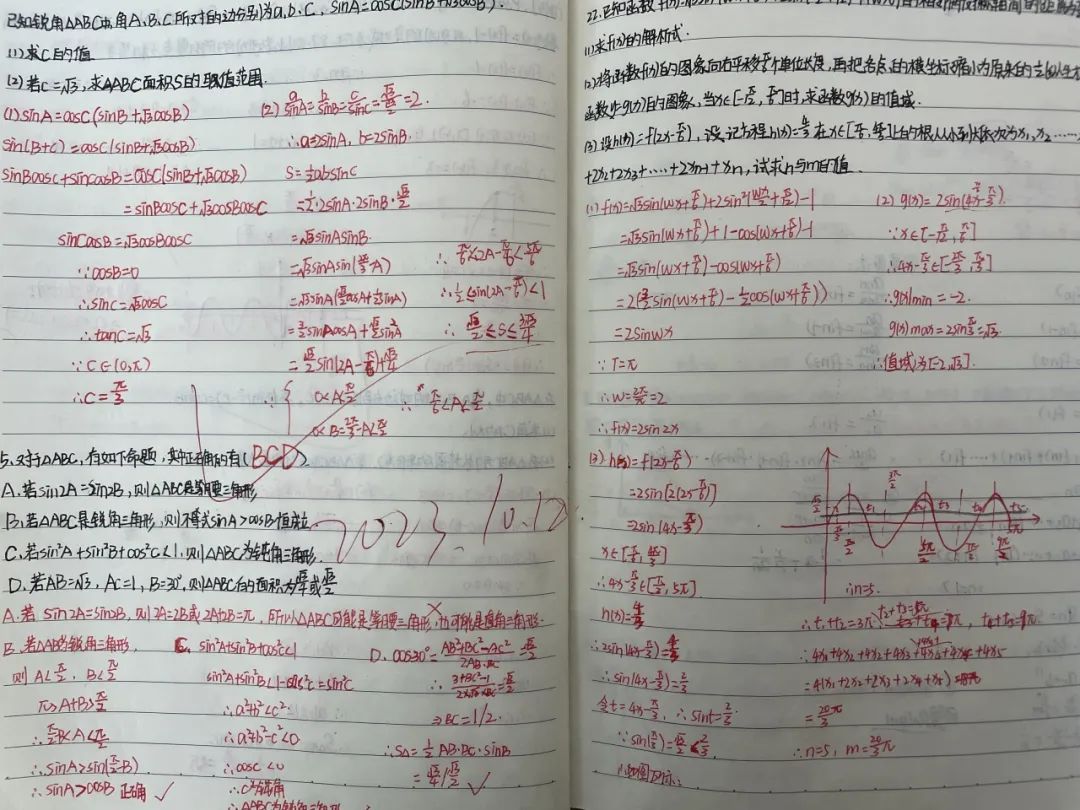 已知锐角△ABC中,角A、B、C所对的边分别为a、b、c, sinA=cosC(sinB+√3cosB).
(1)求C的值
(2)若c=√3,求△ABC面积S的取值范围
(1)sinA=cosC(sinB+√3cosB)
sin(B+C)=cosC(sinB+√3cosB)
sinBcosC+sinCcosB=cosC(sinB+√3cosB)
=sinBcosC+√3cosBcosC
sinCcosB=√3cosBcosC
∵cosB=0
∴sinC=√3cosC
∴tanC=√3
∵C∈(0,π)
∴C=π/3
(2) a/sinA=b/sinB=c/sinC=√3/(√3/2)=2.
∴a=2sinA, b=2sinB.
S=1/2absinC
=1/2·2sinA·2sinB·√3/2
=√3sinAsinB.
=√3sinAsin(2π/3-A)
=√3sinA(√3/2cosA+1/2sinA)
=3/2sinAcosA+√3/2sin²A
=√3/2sin(2A-π/6)+√3/4
∴{0<A<π/2
0<B=2π/3-A<π/2
∴π/6<A<π/2
∴π/6<2A-π/6<5π/6
∴1/2≤sin(2A-π/6)<1
∴√3/2≤S≤3√3/4
5.对于△ABC,有如下命题,其中正确的有(BCD)
A.若sin2A=sin2B,则△ABC是等腰三角形
B.若△ABC是锐角三角形,则不等式sinA>cosB恒成立
C.若sin²A+sin²B+cos²C<1,则△ABC为钝角三角形.
D.若AB=√3, AC=1, B=30°,则△ABC的面积为√3/4或√3/2
2023.10.12.
A.若sin2A=sin2B,则2A=2B或2A+2B=π,所以△ABC可能是等腰三角形,也可能是直角三角形.
B.若△ABC为锐角三角形,
则A<π/2, B<π/2
π>A+B>π/2
∴π/2-B<A<π/2
∴sinA>sin(π/2-B)
∴sinA>cosB 正确
C. sin²A+sin²B+cos²C<1
sin²A+sin²B<1-cos²C=sin²C
∴a²+b²<c²
∴a²+b²-c²<0
∴cosC<0
∴C为钝角
∴△ABC为钝角三角形
D. cos30°=(AB²+BC²-AC²)/(2AB·BC)=√3/2
∴(3+BC²-1)/(2×√3×BC)=√3/2
⇒BC=1/2.
∴S△=1/2AB·BC·sinB
=√3/4/√3/2
22.已知函数
(1)求f(x)的解析式.
(2)将函数f(x)的图象向右平移π/6个单位长度,再把各点的横坐标缩小为原来的1/2
函数y=g(x)的图象,当x∈[-π/12,π/6]时,求函数g(x)的值域.
(3)设h(x)=f(2x-π/6),设记方程h(x)=4/3在x∈[π/6,4π/3]上的根从小到大依次为x₁,x₂……,
+2x₂+2x₃+……+2xₙ₋₁+xₙ,试求n与m的值.
(1)f(x)=√3sin(wx+π/6)+2sin²(wx/2+π/12)-1
=√3sin(wx+π/6)+1-cos(wx+π/6)-1
=√3sin(wx+π/6)-cos(wx+π/6)
=2(√3/2sin(wx+π/6)-1/2cos(wx+π/6))
=2sinwx
∵T=π
∴w=2π/π=2
∴f(x)=2sin2x
(2) g(x)=2sin(4x-π/3).
∵x∈[-π/12,π/6]
∴4x-π/3∈[-2π/3,π/3]
∴g(x)min=-2.
g(x)max=2sinπ/3=√3.
∴值域为[-2,√3].
(3)h(x)=f(2x-π/6)
=2sin[2(2x-π/6)]
=2sin(4x-π/3)
x∈[π/6,4π/3]
∴4x-π/3∈[π/3,5π]
h(x)=4/3
∴2sin(4x-π/3)=4/3
∴sin(4x-π/3)=2/3
令t=4x-π/3,∴sint=2/3
∵sin(π/3)=√3/2
∴如图所示:
∴n=5.
∴t₁+t₂=3π
∴4x₁+4x₂+4x₂+4x₃
=4(x₁+2x₂+2x₃+2x₄+x₅)
=20π/3
∴n=5, m=20/3π